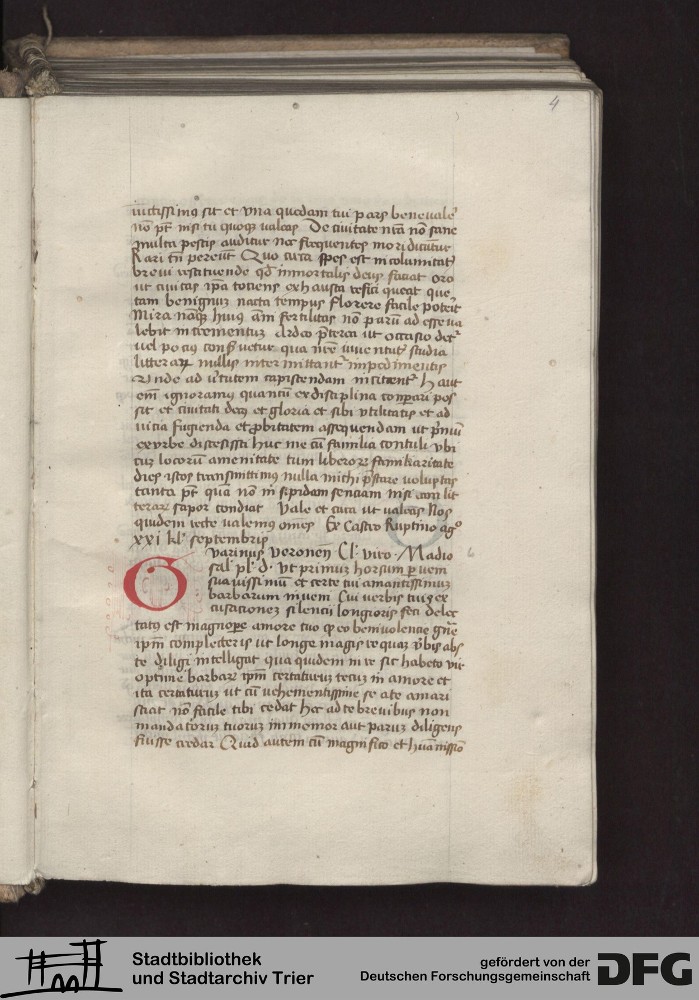 4
iunctissimus sit et vna quedam tui pars bene vale
nō pt nisi tu quoqȝ valeas De civitate nr̄a nō sane
multa pestis auditur nec frequentes mori dicūtur
Rari tn̄ pereūt Quo circa spes est incolumitatē
brevi restituende qd̄ immortalis deus faciat oro
ut civitas ipa totiens exhausta refici queat que
tam benignuȝ nacta tempus florere facile poterit
Mira naqȝ huius ām fertilitas nō parū ad esse va
lebit incrementuȝ Ardeo p̄terea ut occasio det
vel pocius conservetur qua nr̄e iuventuti studia
litterarȝ nullis intermittant impedimentis
Unde ad v̄tutem capistendam incitent haut
em̄ ignoramus quantū ex disciplina conparari pos
sit et civitati decȝ et gloria et sibi vtilitatis et ad
vicia fugienda et probitatem assequendam ut p̄mū
ex vrbe discessissti huc me cū familia contuli vbi
cuȝ locorū amenitate tum liberorȝ familiaritate
dies istos transmittimus nulla mithi p̄stare voluptas
tanta pt quā nō insipidam senciam nisi eam lit
terarȝ sapor condiat Vale et cura ut valeas Nos
quidem recte valemus om̄es Ex Castro Ruptino ago
xxi kl septembris
Gvarinus veronen̄ Cl viro Madio
sal pl d Ut primuȝ horsum perveni
suavissimū et certe tui amantissimuȝ
barbarum inveni Cui verbis tuis ex
cusacioneȝ silencii longioris feci delec
tatȝ est magnopere amore tuo qȝ eo benivolencie gn̄e
ipm̄ complecteris ut longe magis re quaȝ v̄bis abs
te diligi intelligat qua quidem in re sic habeto vir
optime barbarȝ ipm̄ certaturuȝ tecuȝ in amore et
ita certaturuȝ ut cū vehementissime se a te amari
sciat nō facile tibi cedat hec ad te brevibus non
mandatoruȝ tuoruȝ inmemor aut paruȝ diligens
fuisse credar Quid autem cū magnifico et hūanissimo
6
Stadtbibliothek
und Stadtarchiv Trier
gefördert von der
Deutschen Forschungsgemeinschaft
DFG